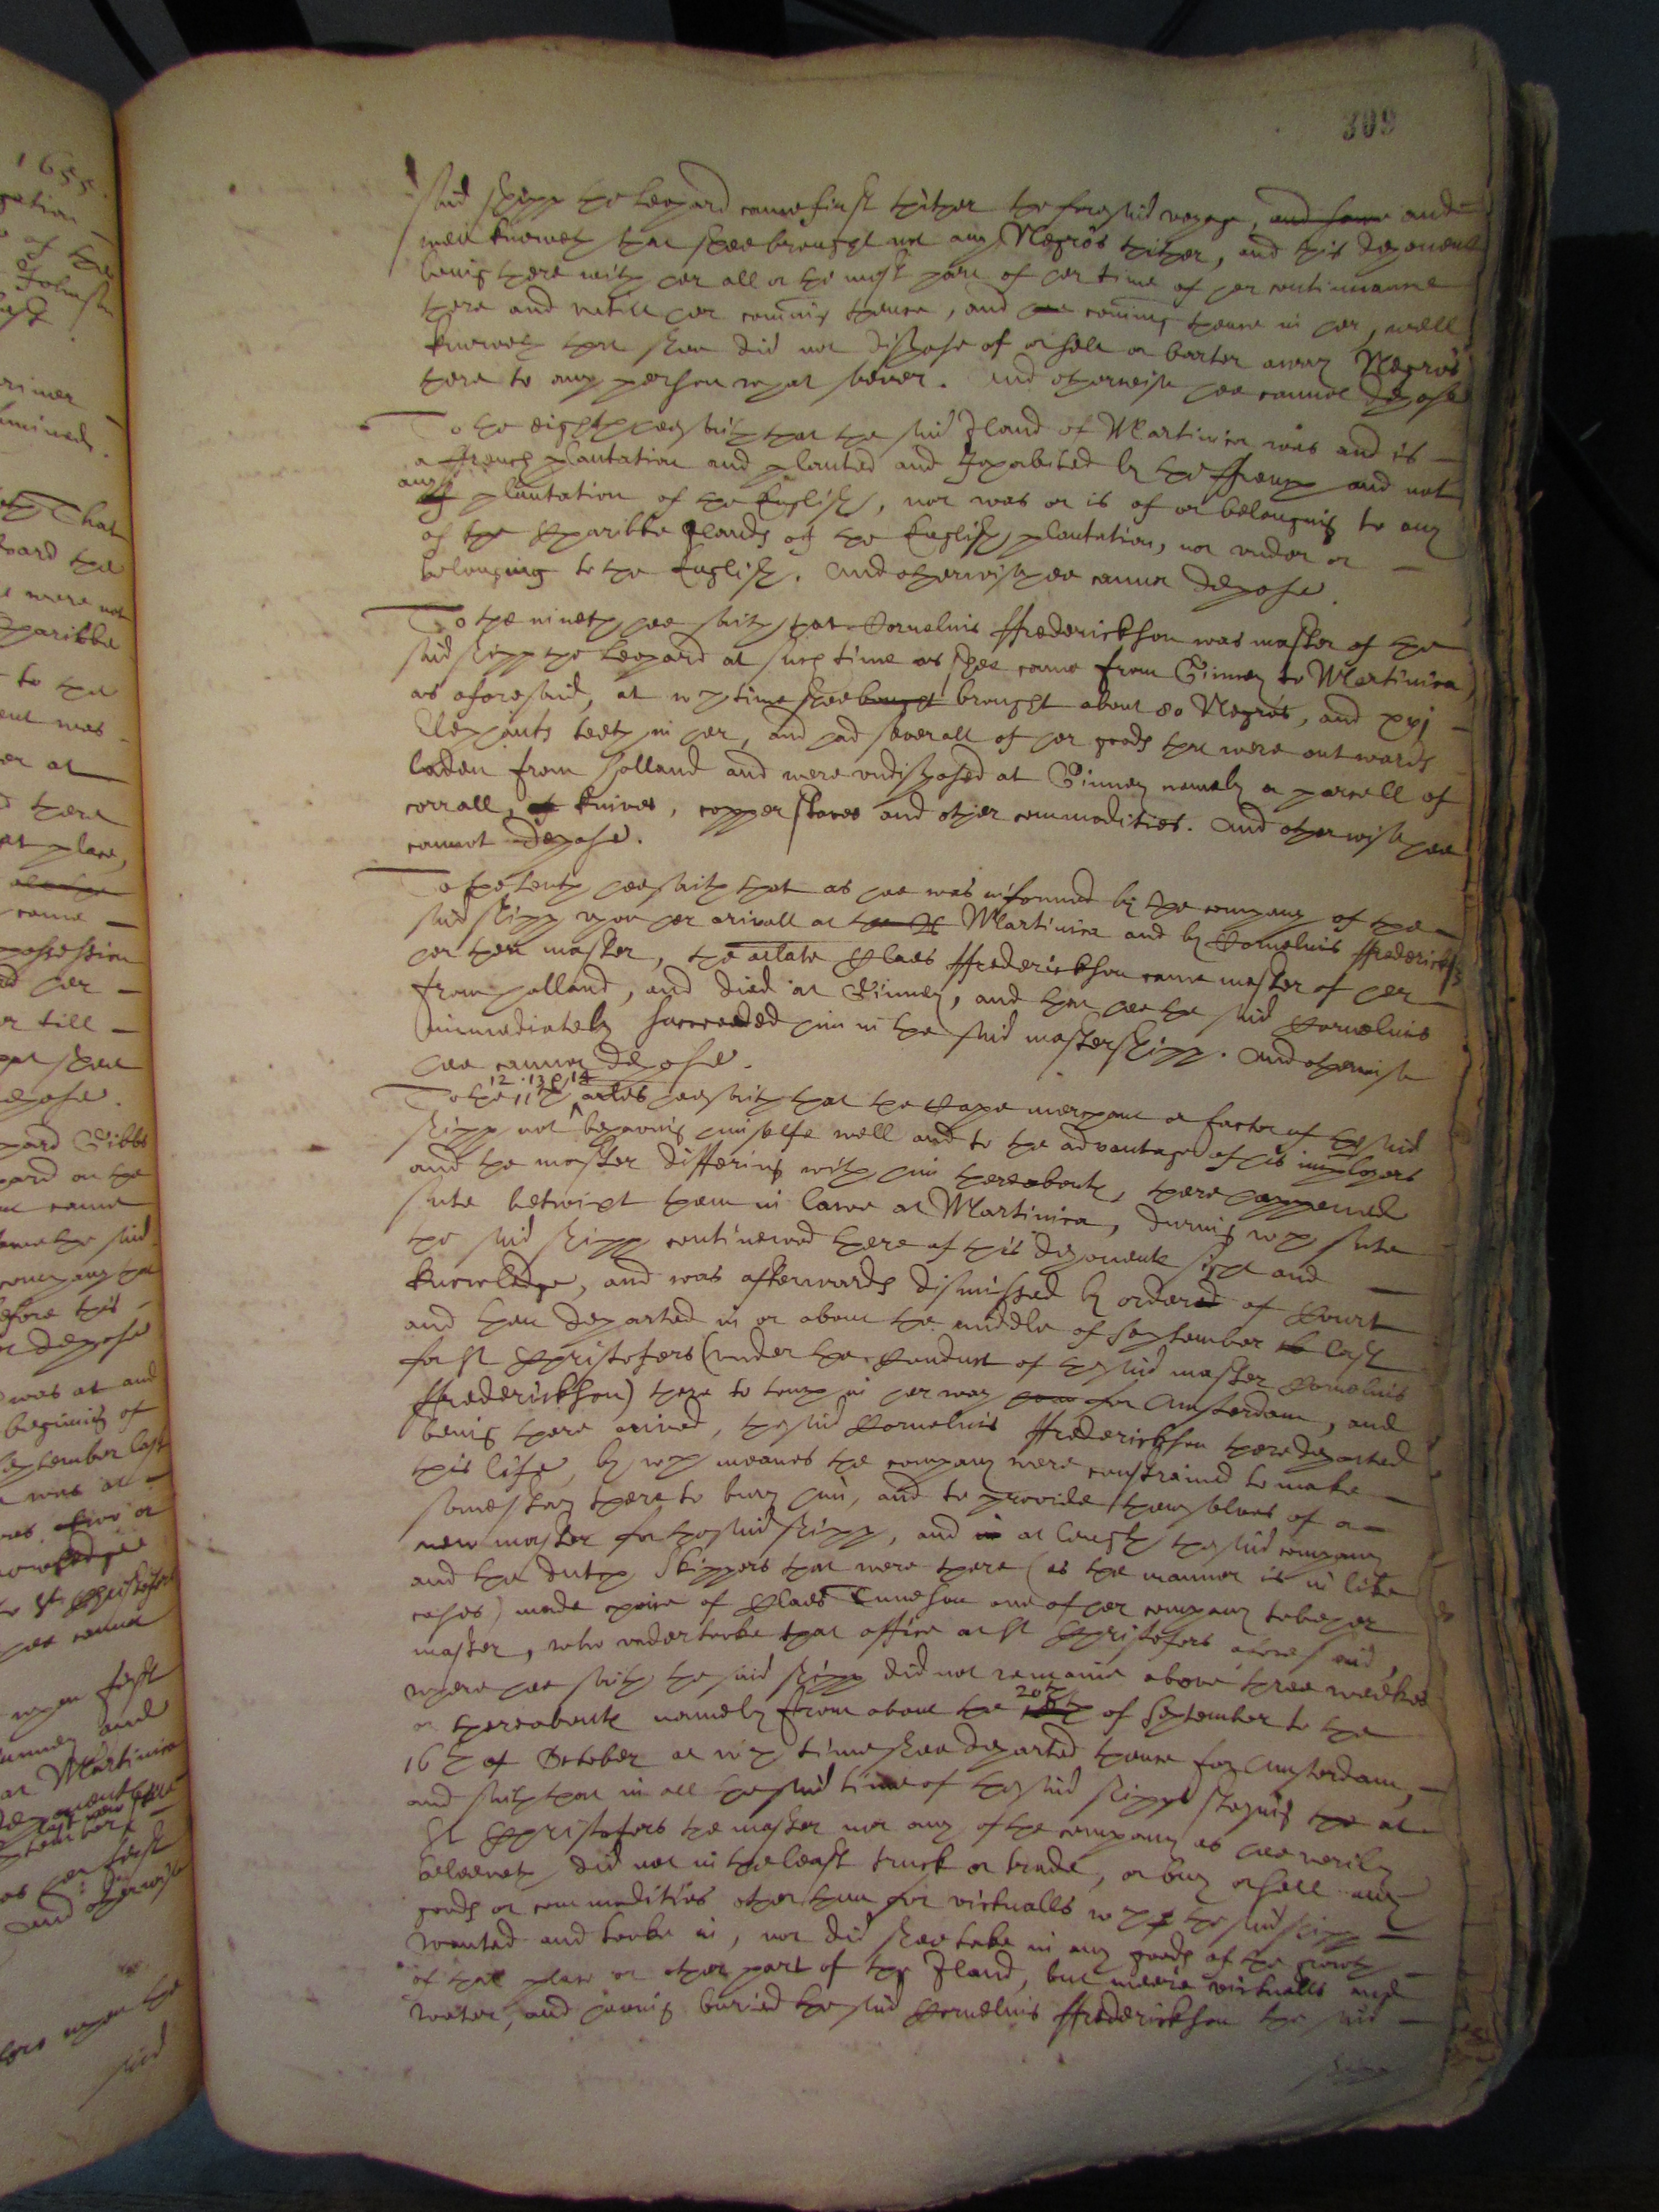 309
said shipp the Leopard came first thither the foresaid voyage, and some and
well knoweth that shee brought not any Negros thither, and this deponent
being there with her all or the most part of her time of her continuance
there and untill her coming thence, and her coming thence in her, well
knoweth that shee did not dispose of or sell or barter away Negros
there to any person what soever. And otherwise hee cannot depose
To the eighth hee saith that the said Iland of Martinica was and is
a french plantation and planted and Inhabited by the ffrench and not
any of plantation of the English, nor was or is of or belonging to any
of the Charibbe Ilands of the English plantation, nor under or
belonging to the English. And otherwise hee cannot depose.
To the nineth hee saith that Cornelius ffrederickson was master of the
said shipp the Leopard at such time as shee came from Ginney to Martinica
as aforesaid, at wch time shee bought brought about 80 Negros, and xxj
Elephants teeth in her, and had severall of her goods that were outwards
laden from Holland and were undisposed at Ginney namely a parcell of
corrall, of knives, copper staves and other commodities. And otherwise hee
cannot depose.
To the tenth hee saith that as hee was informed by the company of the
said shipp upon her arivall at the Is Martinica and by Cornelius ffredericks
her then master, the arlate Claes ffrederickson came master of her
from holland, and died at Ginney, and that hee the said Cornelius
immediately succeeded him in the said mastershipp. And otherwise
hee cannot depose.
To the 11th 12. 13 et 14 arles hee saith that the Cape merchant or factor of the said
shipp not behaving himselfe well and to the advantage of his imployers
and the master differing with him thereabouts, there happened
suite betwixt them in lawe at Martinica, during wch suite
the said shipp continewed there of this deponents sight and
knowledge, and was afterwards dismissed by ordered of Court
and then departed in or about the middle of September last
for St Christofers (under the Conduct of the said master Cornelius
ffrederickson) there to touch in her way home for Amsterdam, and
being there arived, the said Cornelius ffrederickson there departed
this life, by wch meanes the company were constrained to make
some stay there to bury him, and to provide themselves of a
new master for the said shipp, and in at length the said company
and the dutch Skippers that were there (as the manner is in like
cases) made choice of Claes Euneson one of her company to be her
master, who undertooke that office at St Christofers aforesaid,
where hee saith the said shipp did not remaine above three weekes
or thereabouts namely from about the 20th of September to the
16th of October at wch time shee departed thence for Amsterdam,
and saith that in all the said time of the said shipps staying the at
St Christofers the master nor any of the company as hee verily
beleeveth did not in the least truck or trade, or buy or sell any
goods or commodities other than for victualls wch the said shipp
wanted and tooke in, nor did shee take in any goods of the growth
of that place or other part of the Iland, but meere victualls and
water, and having buried the said Cornelius ffrederickson the said
1655.
of the
That
were not
to the
was
there
place,
came
possession
her
till
depose.
Gibbs
came
company
before this
depose
was at and
begining of
September last
was at
St Christofers
hee cannot
upon first
and
at Martinica
first
and otherwise
upon the
said